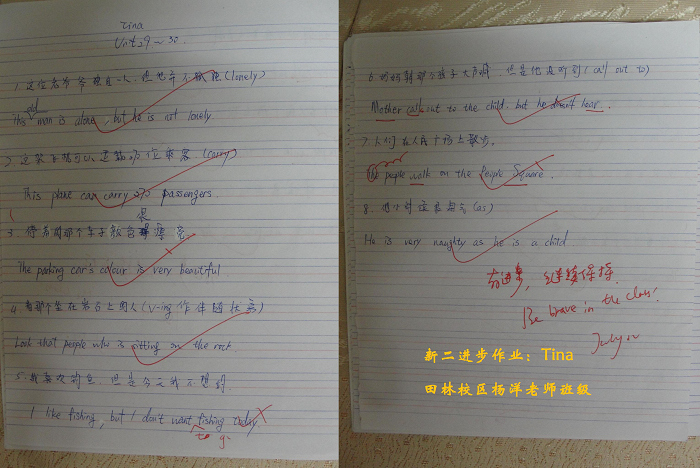 Tina
Unit 29~30.
1. 这位老爷爷独自一人,但他并不孤独(lonely)
old
This man is alone, but he is not lonely.
2 这架飞机可以运载 位乘客(carry)
This plane can carry passengers.
3. 停 那个车子 色 漂亮
The parking car's colour is very beautiful.
4 看那个坐在 石上的人(V-ing 作伴随状 )
Look that people who is sitting on the rock.
5. 我喜欢钓鱼,但是今天我不想钓
I like fishing, but I don't want fishing today
to g
6 妈妈朝那个孩子大声喊,但是他没听到(call out to)
Mother call out to the child, but he doesn't hear.
7 人们在人民广场上散步。
The people walk on the People Square.
8. (as)
He is very naughty as he is a child.
有进步,继续保持.
Be brave in the class!
新二进步作业:Tina
田林校区杨洋老师班级